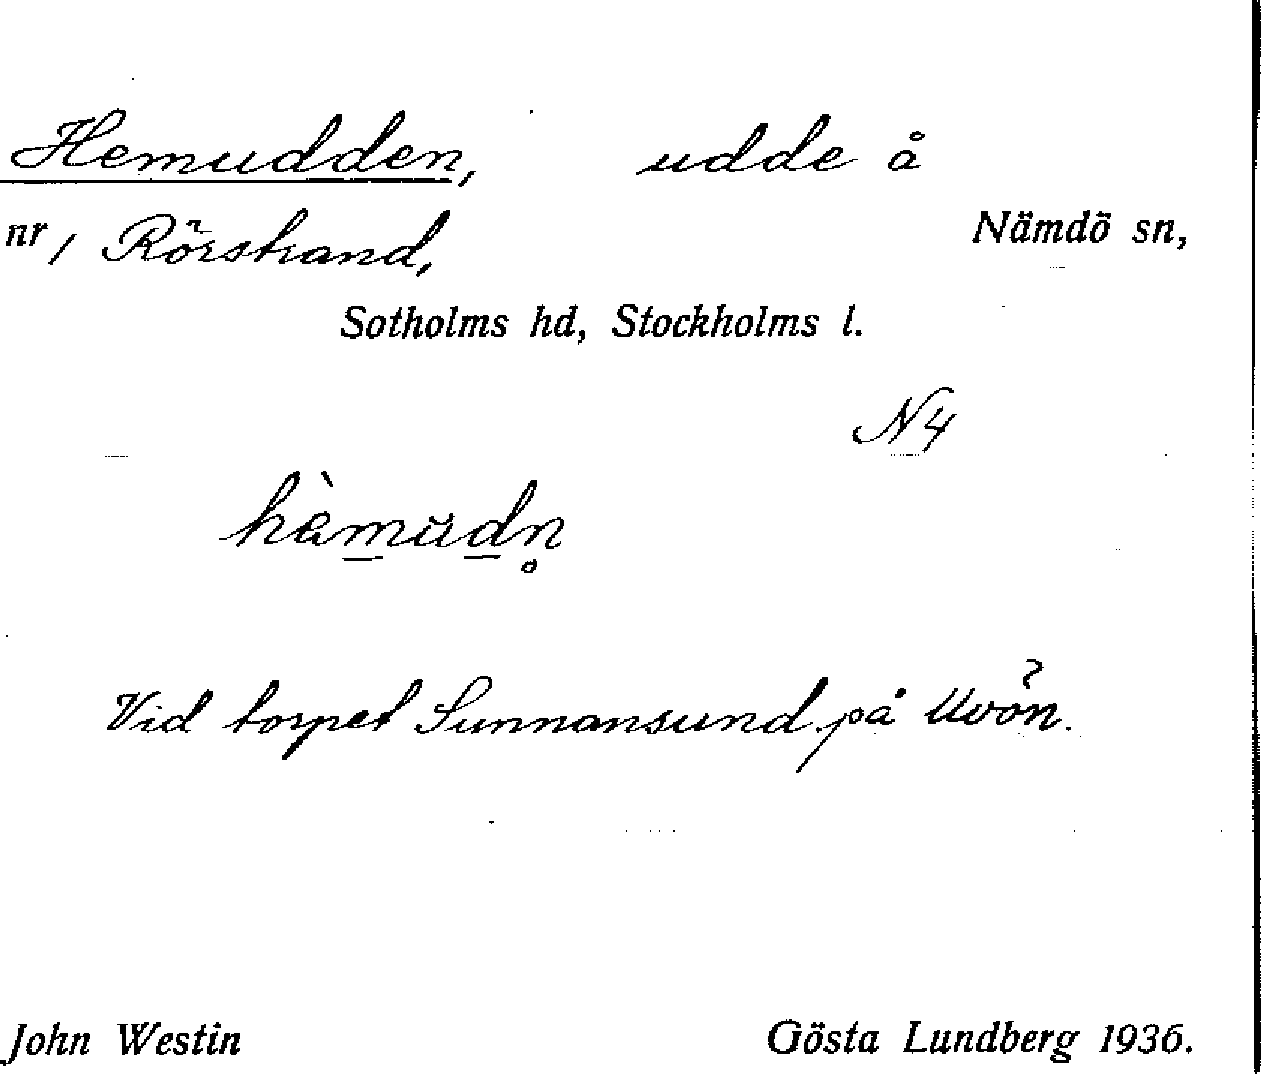 Hemudden, udde å
nr / Rörstrand, Nämdö sn,
Sotholms hd, Stockholms l.
N4
hèmudn̥
Vid torpet Sunnansund på Uvön.
John Westin Gösta Lundberg 1936.